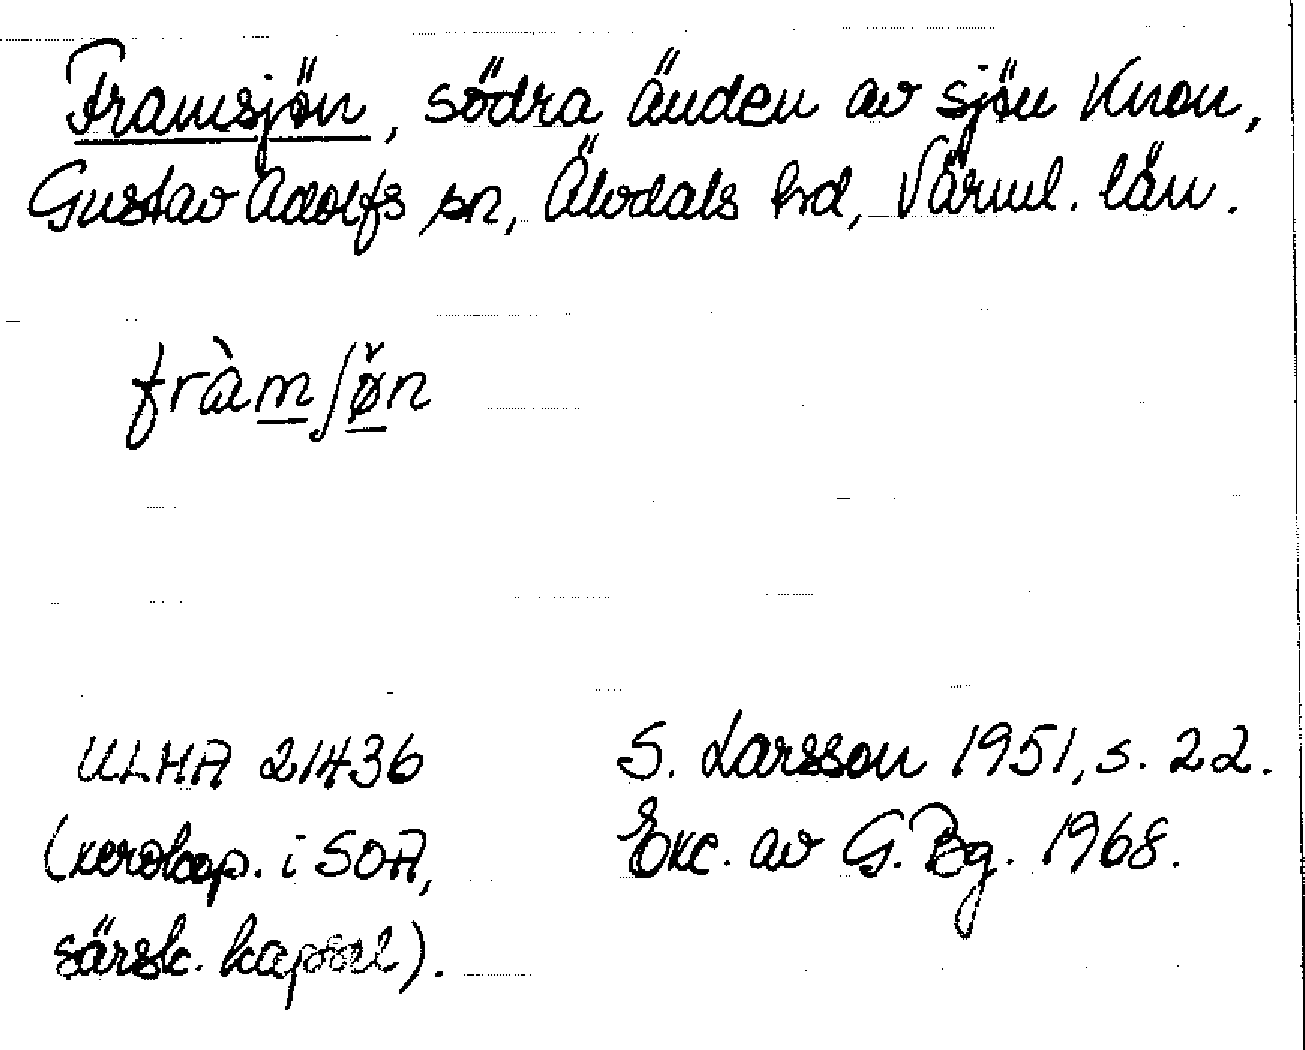 Framsjön, södra änden av sjön Knon,
Gustav Adolfs sn, Älvdals hd, Värml. län.
fràmʃø̌n
ULMA 21436
S. Larsson 1951, s. 22.
(xerokop. i SOA,
Exc. av G. Bg. 1968.
särsk. kapsel).